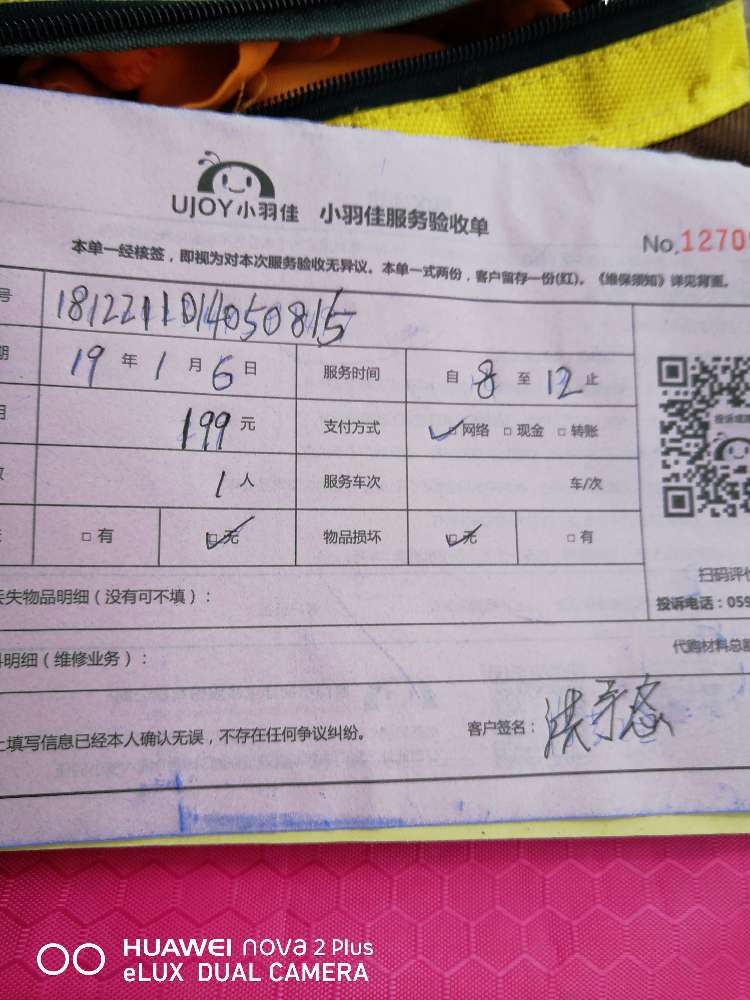 UJOY小羽佳 小羽佳服务验收单
No.1270
本单一经核签，即视为对本次服务验收无异议。本单一式两份，客户留存一份(红)。《维保须知》详见背面。
号 1812211014050815
期 19 年 1 月 6 日 服务时间 自 8 至 12 止
199 元 支付方式 ✓□ 网络 □ 现金 □ 转账
1 人 服务车次 车/次
□ 有 ☑ 无 物品损坏 ☑ 无 □ 有
失物品明细（没有可不填）：
扫码评价
投诉电话：059
明细（维修业务）：
代购材料总额
上填写信息已经本人确认无误，不存在任何争议纠纷。
客户签名：
HUAWEI nova 2 Plus
eLUX DUAL CAMERA